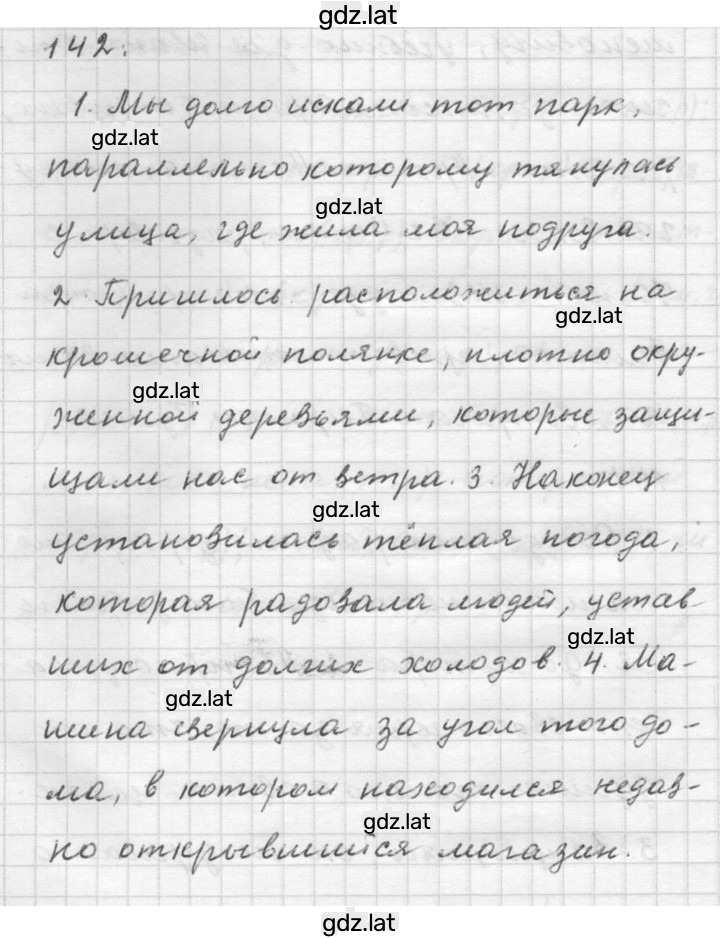 gdz.lat
142.
1. Мы долго искали тот парк,
gdz.lat
параллельно которому тянулась
gdz.lat
улица, где жила моя подруга.
2 Пришлось расположиться на
gdz.lat
крошечной полянке, плотно окру-
gdz.lat
женной деревьями, которые защи-
щали нас от ветра. 3. Наконец
gdz.lat
установилась тёплая погода,
которая радовала людей, устав-
gdz.lat
ших от долгих холодов. 4. Ма-
gdz.lat
шина свернула за угол того до-
ма, в котором находился недав-
gdz.lat
но открывшийся магазин.
gdz.lat